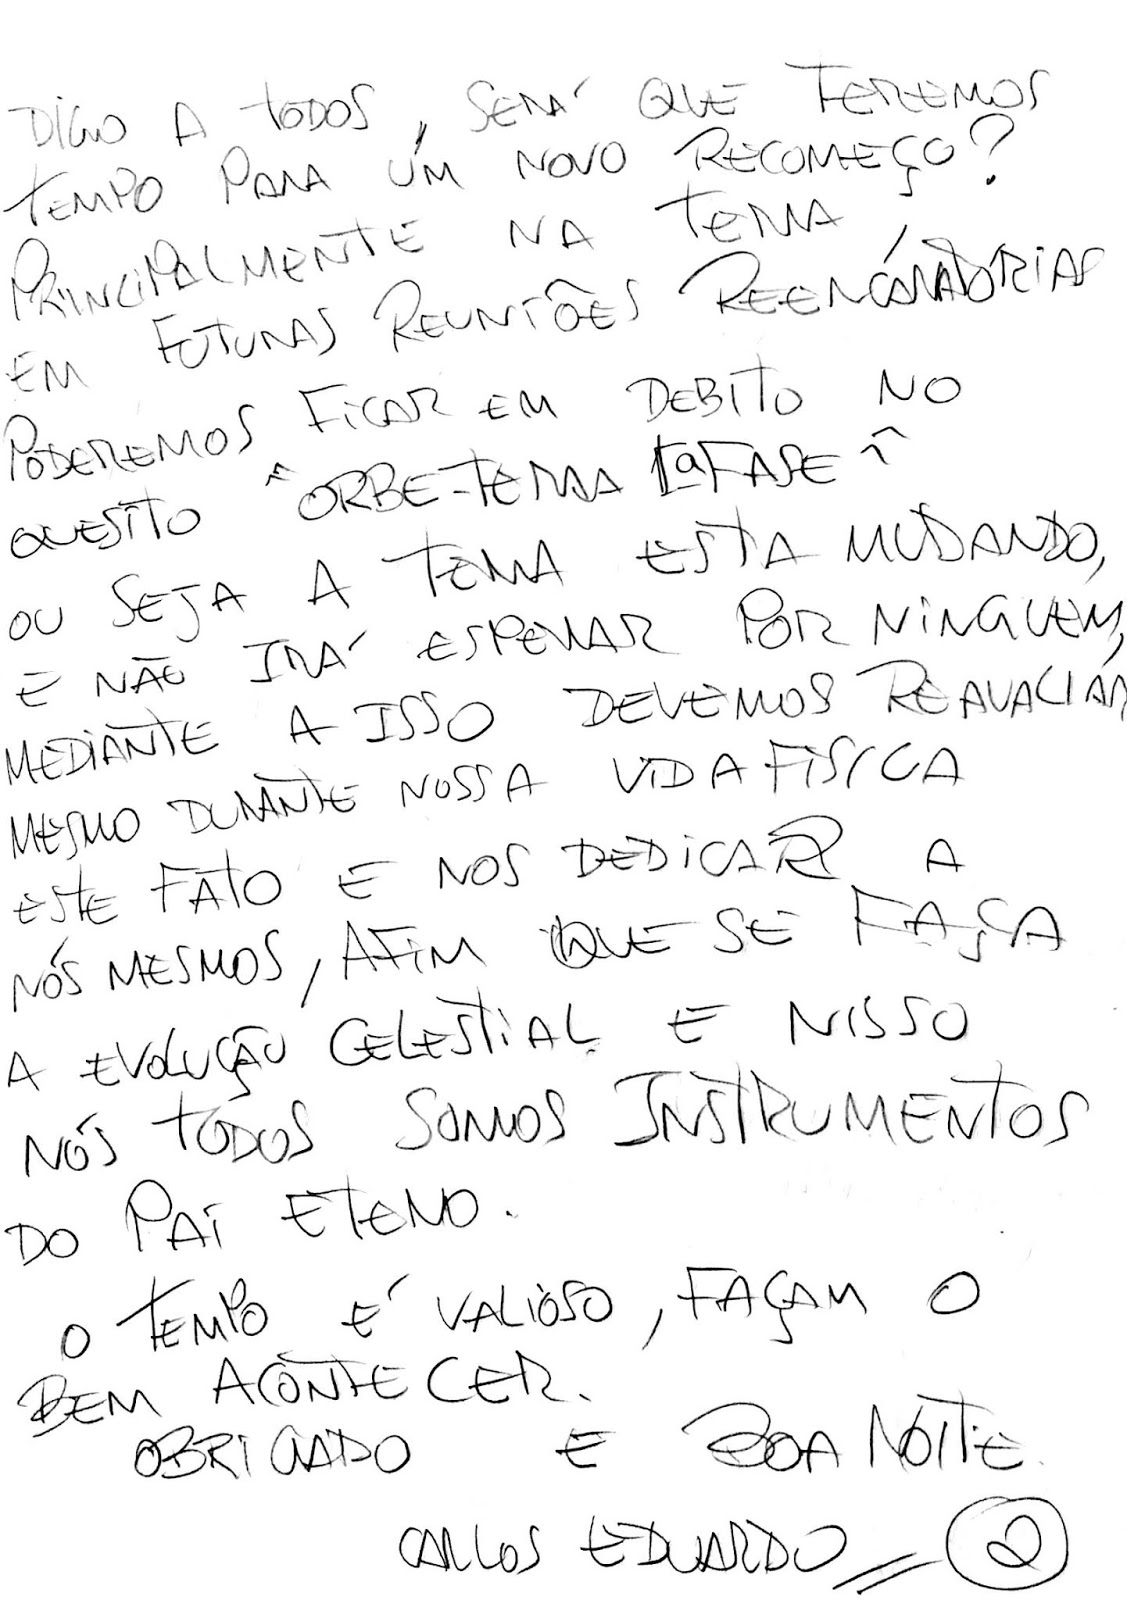 DIGO A TODOS, SERÁ QUE TEREMOS
TEMPO PARA UM NOVO RECOMEÇO?
PRINCIPALMENTE NA TERRA,
EM FUTURAS REUNIÕES REENCARNATÓRIAS
PODEREMOS FICAR EM DEBITO NO
QUESITO "ORBE-TERRA 1ª FASE"
OU SEJA A TERRA ESTA MUDANDO,
E NÃO IRÁ ESPERAR POR NINGUEM,
MEDIANTE A ISSO DEVEMOS REAVALIAR
MESMO DURANTE NOSSA VIDA FISICA
ESTE FATO E NOS DEDICAR A
NÓS MESMOS, AFIM QUE SE FAÇA
A EVOLUÇÃO CELESTIAL E NISSO
NÓS TODOS SOMOS INSTRUMENTOS
DO PAI ETERNO.
O TEMPO É VALIOSO, FAÇAM O
BEM ACONTECER.
OBRIGADO E BOA NOITE.
CARLOS EDUARDO 2